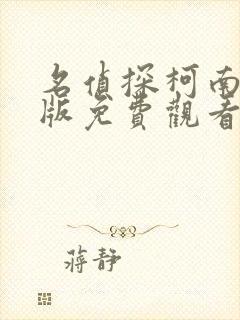 名偵探柯南
版免費觀看
蔣靜